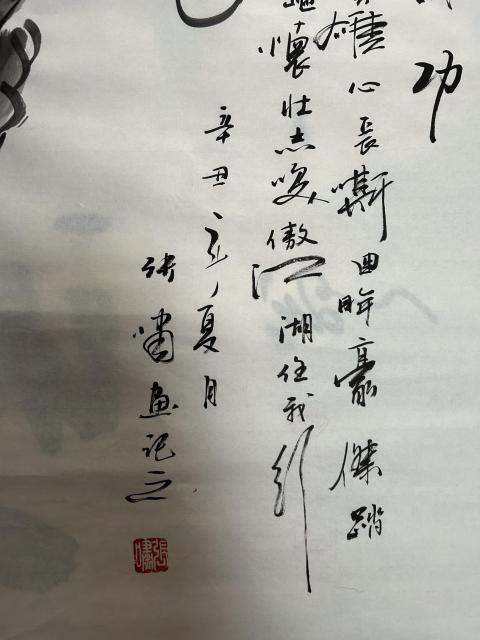 功
雄心長嘶回眸豪傑踏
嶇懷壯志咲傲江湖任我行
辛丑夏月
張嘯畫記之
張嘯